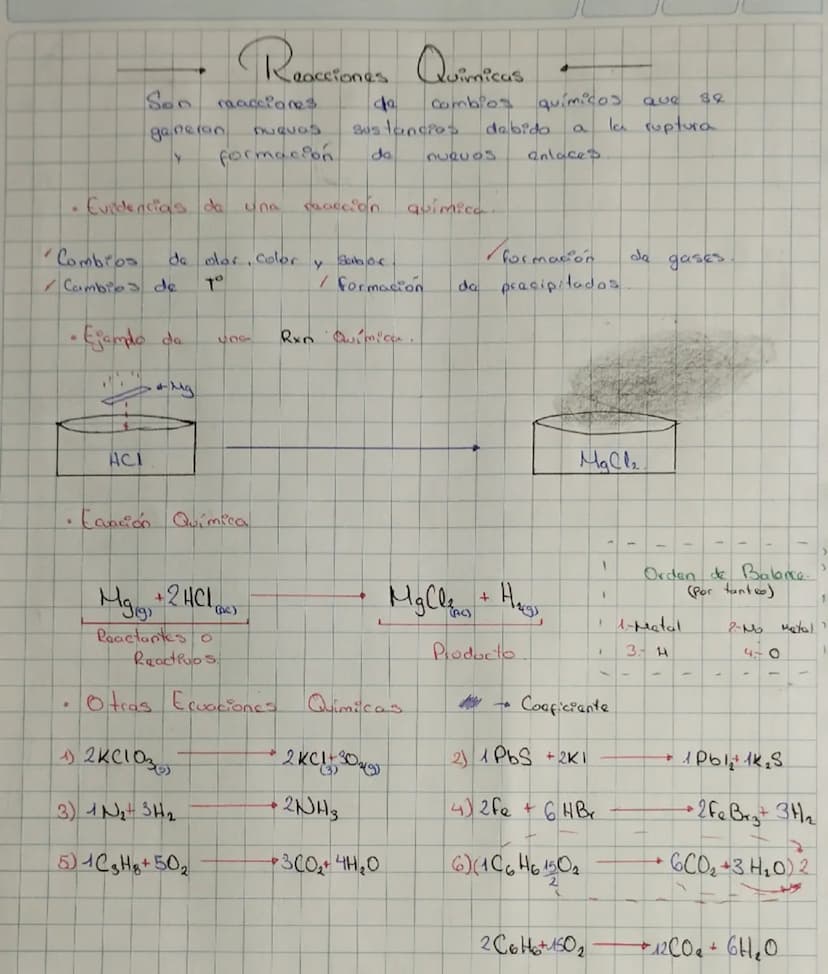 Reacciones Químicas
Son reacciones de cambios químicos que se
generan nuevas sustancias debido a la ruptura
y formación de nuevos enlaces.
• Evidencias de una reacción química.
Cambios de olor, color y sabor. formación de gases.
Cambios de T° formación de precipitados.
• Ejemplo de una Rxn Química.
Mg
HCl MgCl₂
• Ecuación Química
Mg(g) + 2HCl(ac) → MgCl₂(ac) + H₂(g)
Reactantes o
Reactivos.
Producto
Orden de Balance.
(Por tanteo)
1-Metal 2-No Metal
3.- H 4.- O
• Otras Ecuaciones Químicas → Coeficiente
1) 2KClO₃(s) → 2KCl(s) + 3O₂(g) 2) 1PbS + 2KI → 1PbI₂ + 1K₂S
3) 1N₂ + 3H₂ → 2NH₃ 4) 2Fe + 6HBr → 2FeBr₃ + 3H₂
5) 1C₃H₈ + 5O₂ → 3CO₂ + 4H₂O 6) (1C₆H₆ 15/2 O₂ → 6CO₂ + 3H₂O) 2
2C₆H₆ + 15O₂ → 12CO₂ + 6H₂O